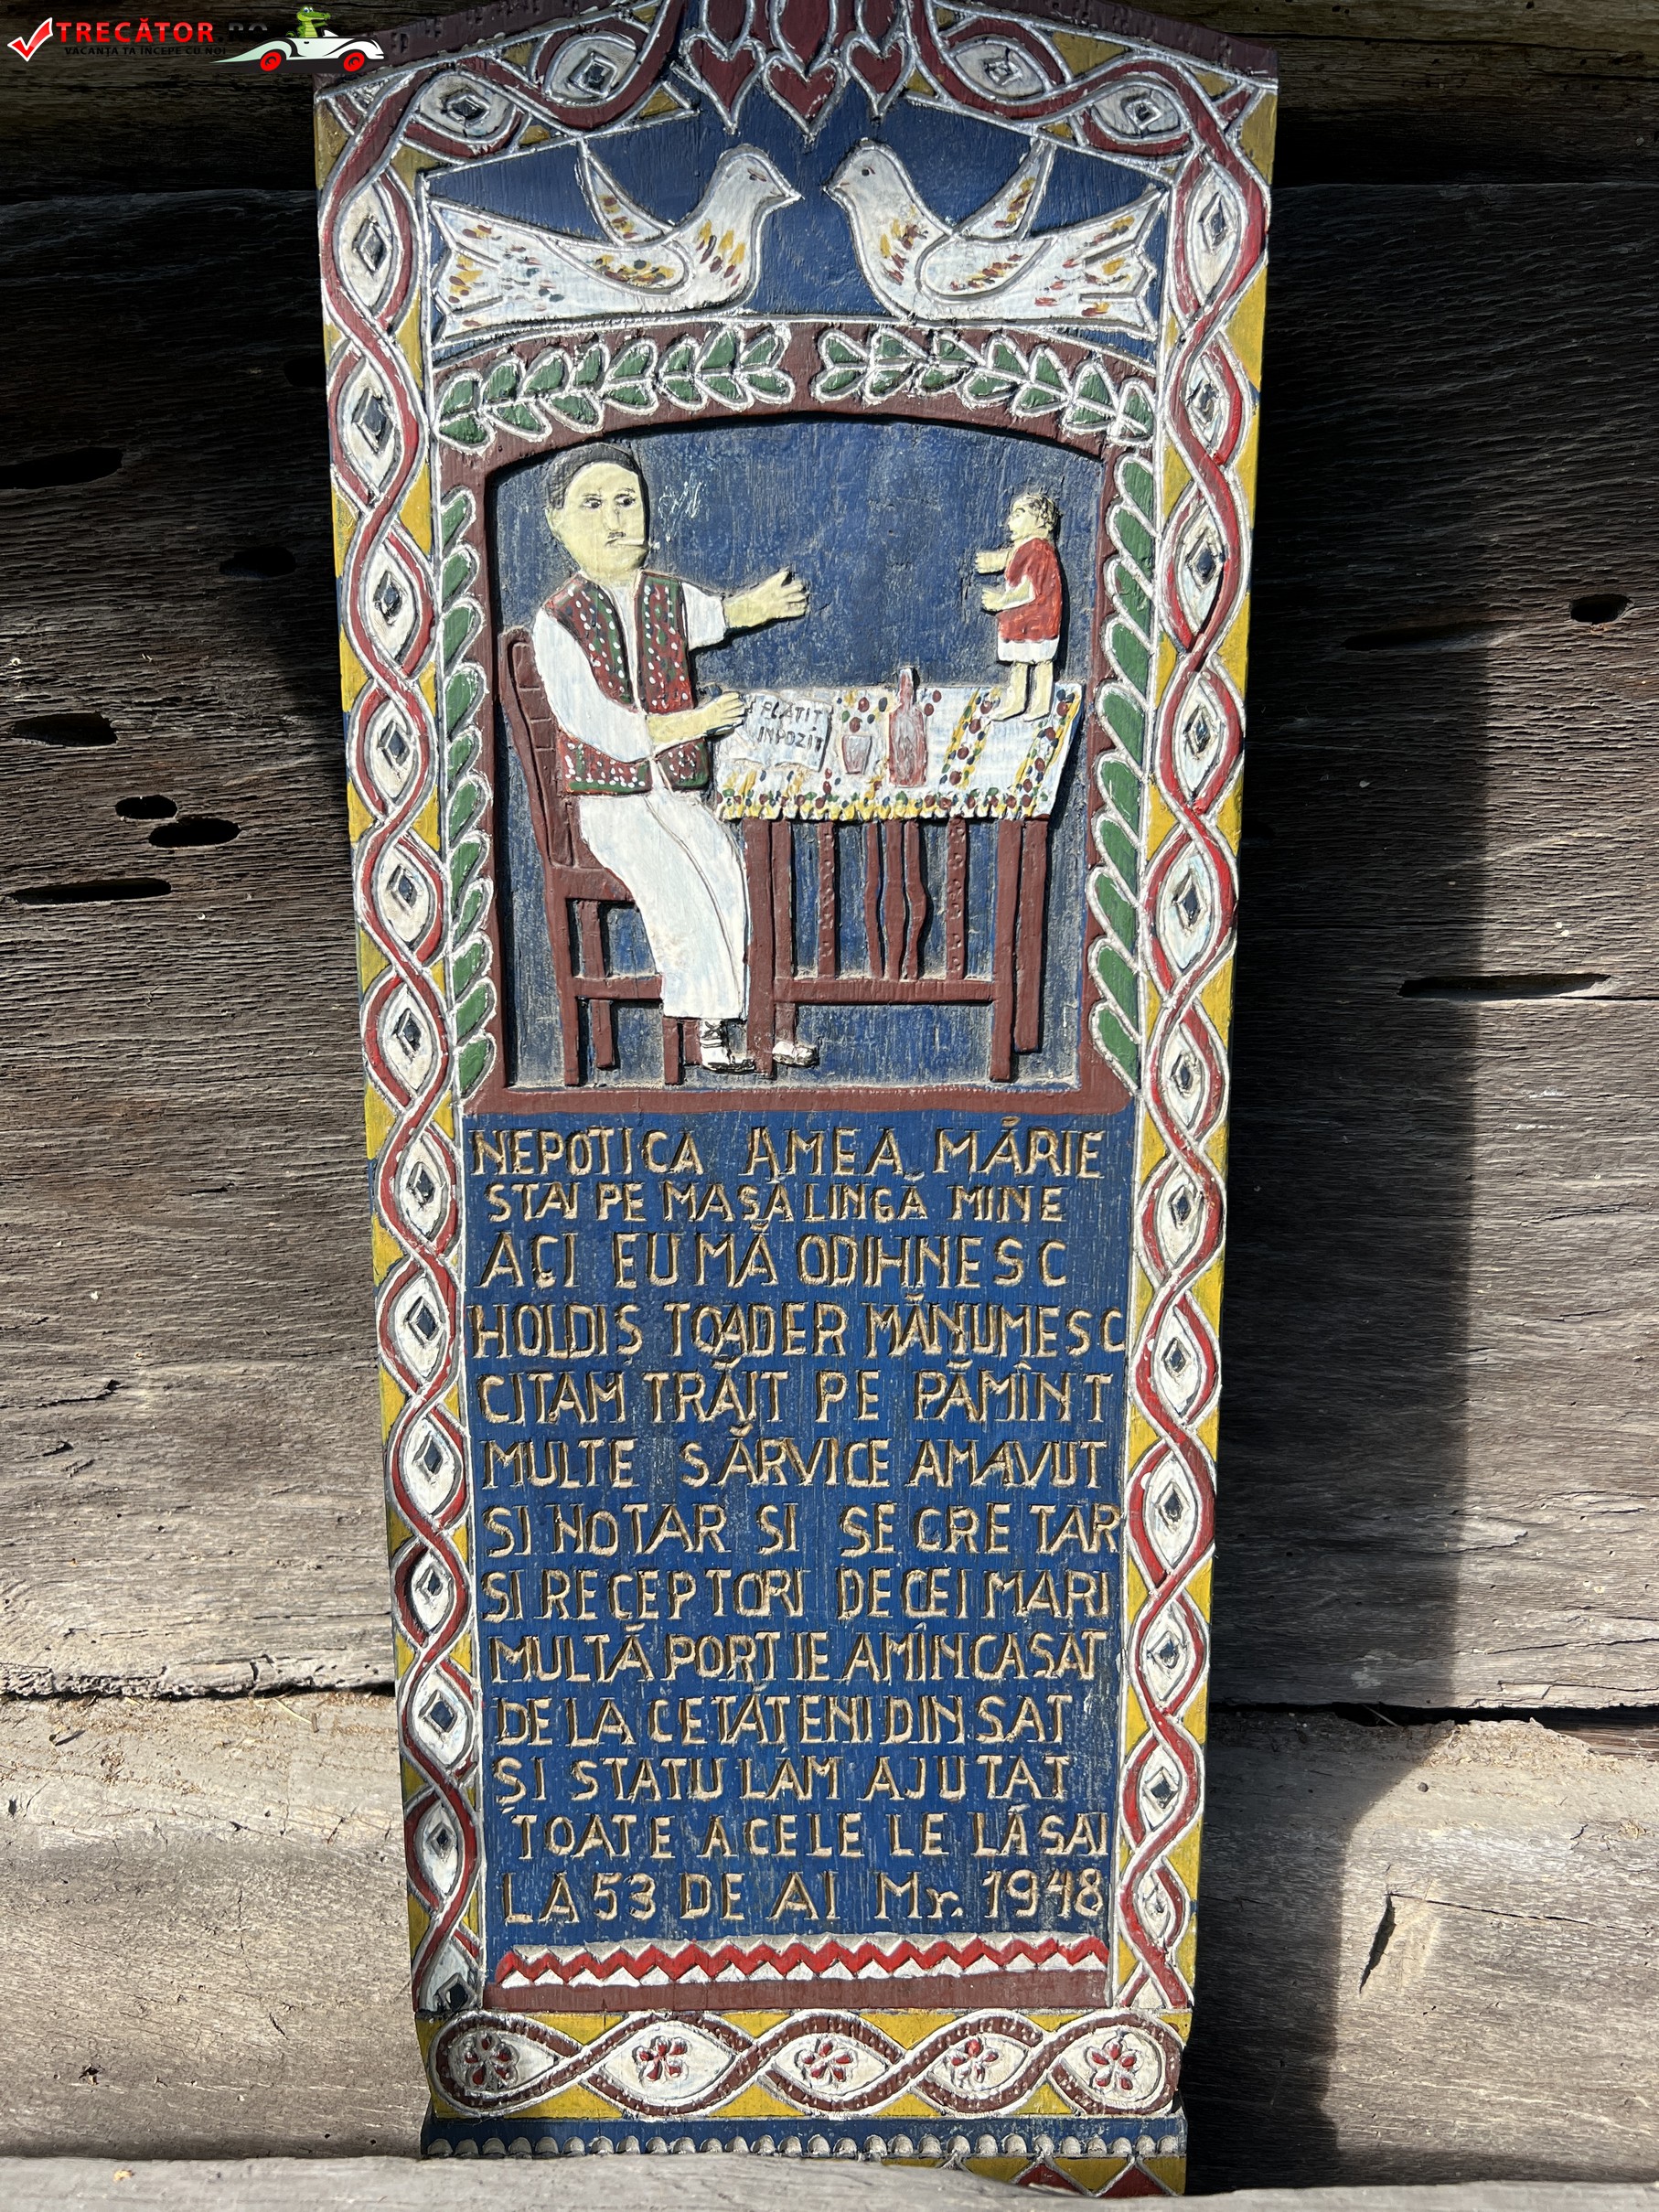 TRECĂTOR.RO
VACANȚA TA ÎNCEPE CU NOI
PLATIT
INPOZIT
NEPOTICA AMEA MĂRIE
STAI PE MASĂ LINGĂ MINE
ACI EU MĂ ODIHNESC
HOLDIȘ TOADER MĂNUMESC
CITAM TRĂIT PE PĂMÎNT
MULTE SĂRVICE AMAVUT
SI NOTAR SI SECRETAR
SI RECEPTORI DE CEI MARI
MULTĂ PORTIE AMÎNCASAT
DE LA CETĂTENI DIN SAT
ȘI STATU LAM AJUTAT
TOATE ACELE LE LĂSAI
LA 53 DE AI Mr. 1948